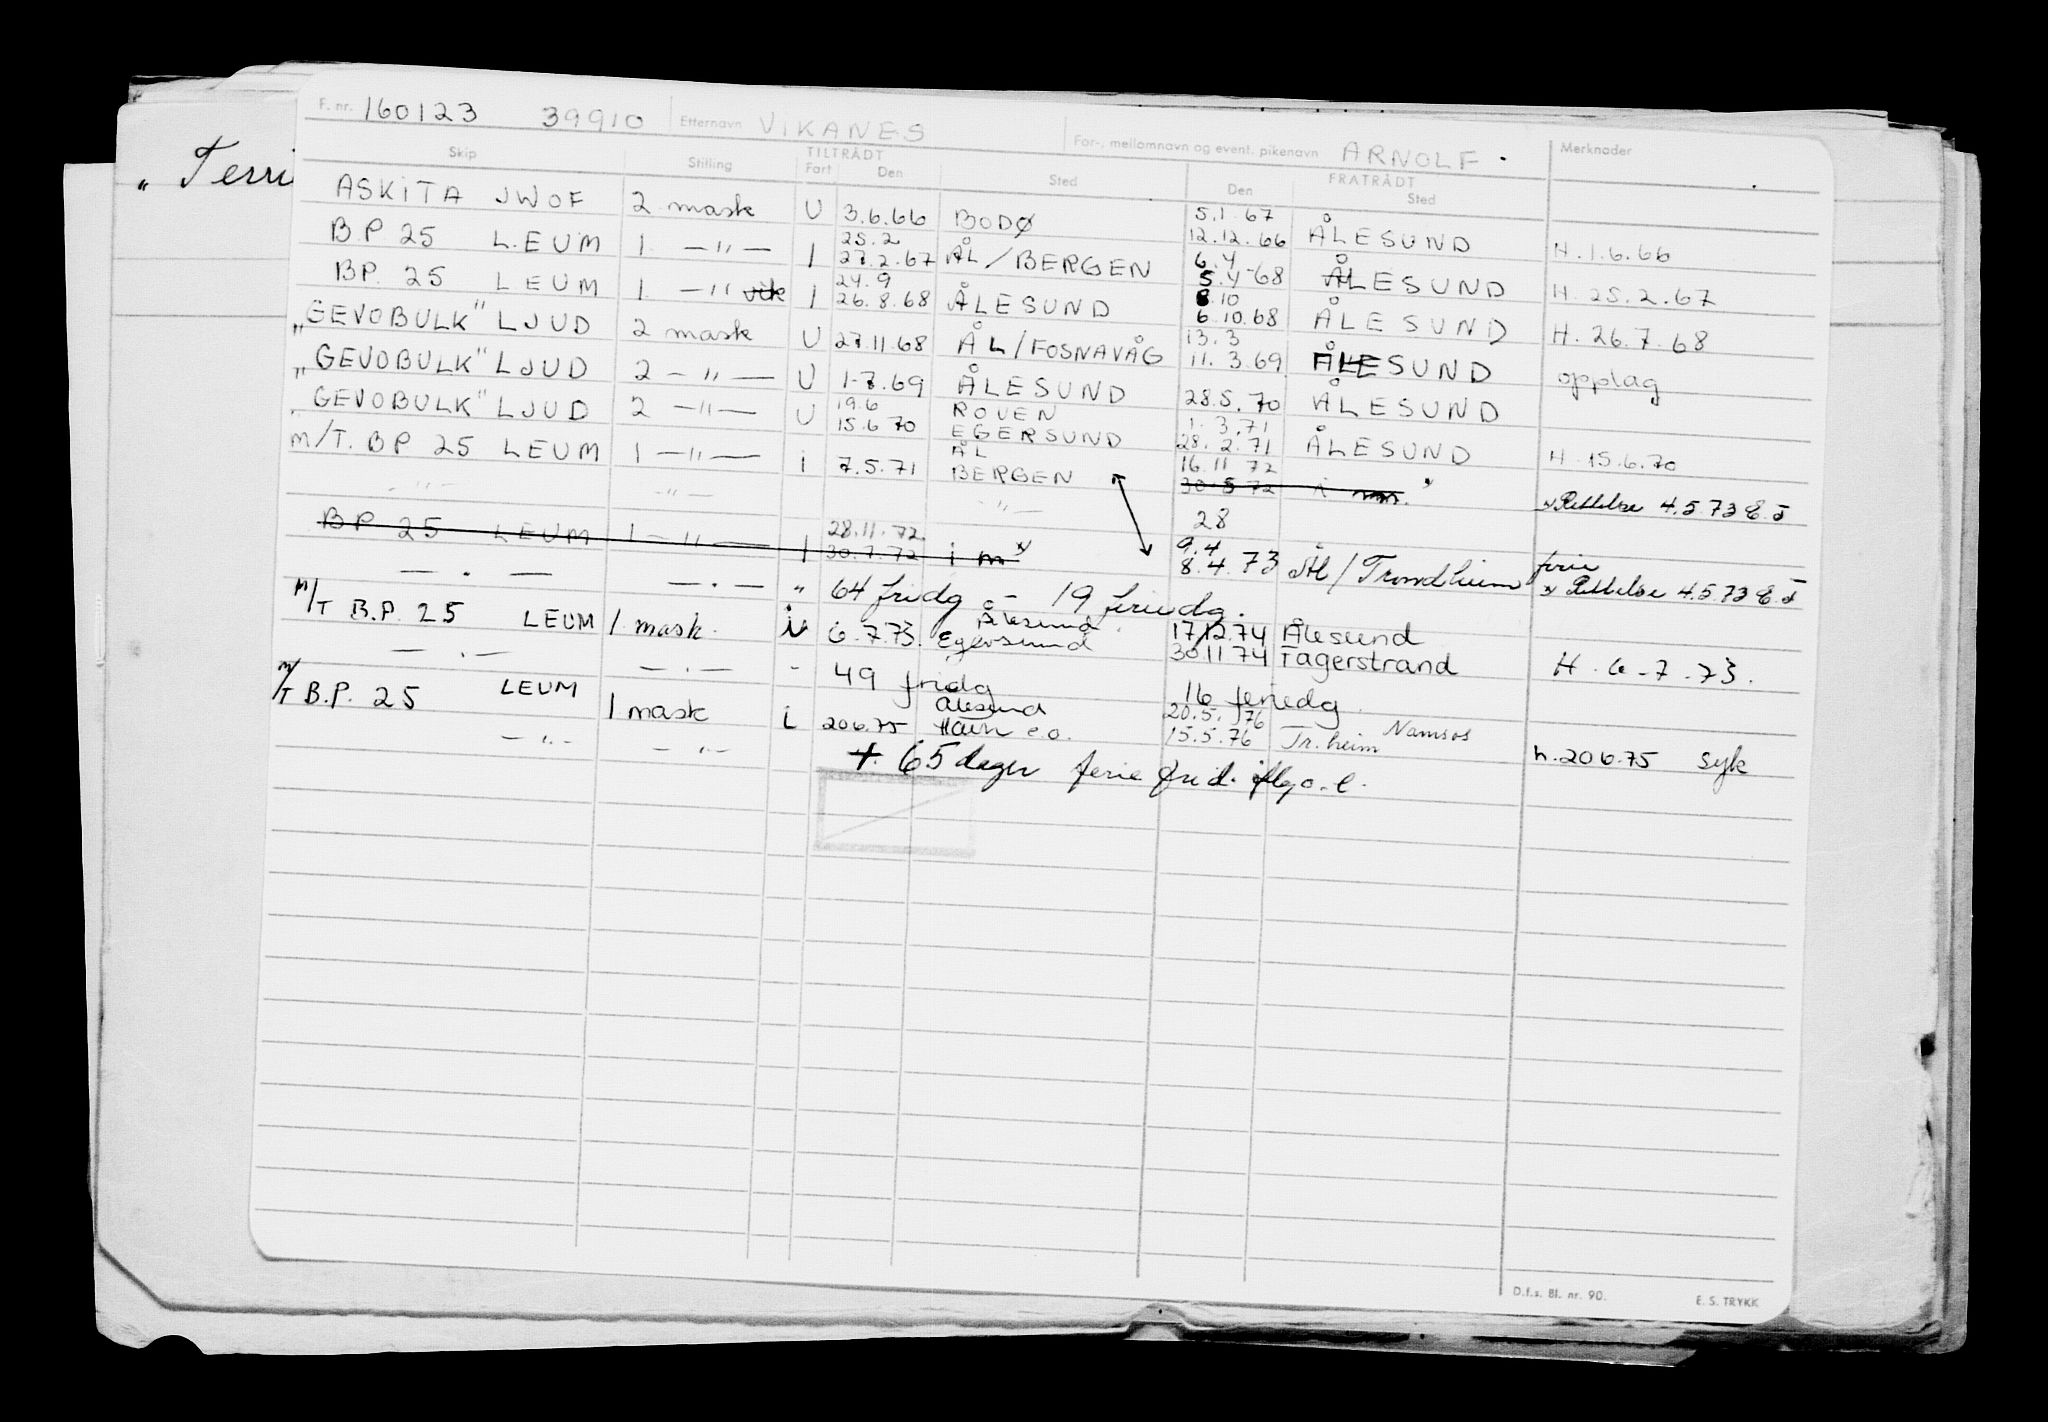 „ Terri
F. nr. 160123 39910 Etternavn VIKANES For-, mellomnavn og event. pikenavn ARNOLF. Merknader
Skip Stilling TILTRÅDT FRATRÅDT
Fart Den Sted Den Sted
ASKITA JWOF 2 mask U 3.6.66 BODØ 5.1.67 12.12.66 ÅLESUND H.1.6.66
B.P 25 LEUM 1 —"— I 25.2 27.2.67 ÅL/BERGEN 6.4 5.4-68 ÅLESUND H.25.2.67
BP. 25 LEUM 1 —" vik I 24.9 26.8.68 ÅLESUND 8.10 6.10.68 ÅLESUND H.26.7.68
„GEVOBULK" LJUD 2 mask U 27.11.68 ÅL/FOSNAVÅG 13.3 11.3.69 ÅLESUND opplag
„GEVOBULK" LJUD 2 —"— U 1.7.69 ÅLESUND 28.5.70 ÅLESUND
„GEVOBULK" LJUD 2 —"— U 19.6 15.6 70 ROUEN EGERSUND 1.3.71 28.2.71 ÅLESUND H.15.6.70
M/T. BP 25 LEUM 1 —"— i 7.5.71 ÅL BERGEN 16.11 72 30.5 72 x Rettelse 4.5.73 E.J
—"— —"— "— 28
BP 25 LEUM 1 —"— I 28.11.72. 30.7.72 i m x 9.4 8.4.73 Ål/Trondheim ferie
— . — — . — " 64 fridg – 19 feriedg. x Rettelse 4.5.73 E.J
M/T B.P. 25 LEUM 1 mask. i 6.7.73. Ålesund Egersund 17/12.74 30.11 74 Ålesund Fagerstrand H.6-7.73.
— . — — . — - 49 fridg 16 feriedg.
M/T B.P. 25 LEUM 1 mask i 20.6.75 Ålesund Havn e.o. 20.5.76 15.5.76 Tr.heim Namsos h.20.6.75 syk
— " — — " — + 65 dager ferie frid.
D.f.s. Bl. nr. 90. E. S. TRYKK